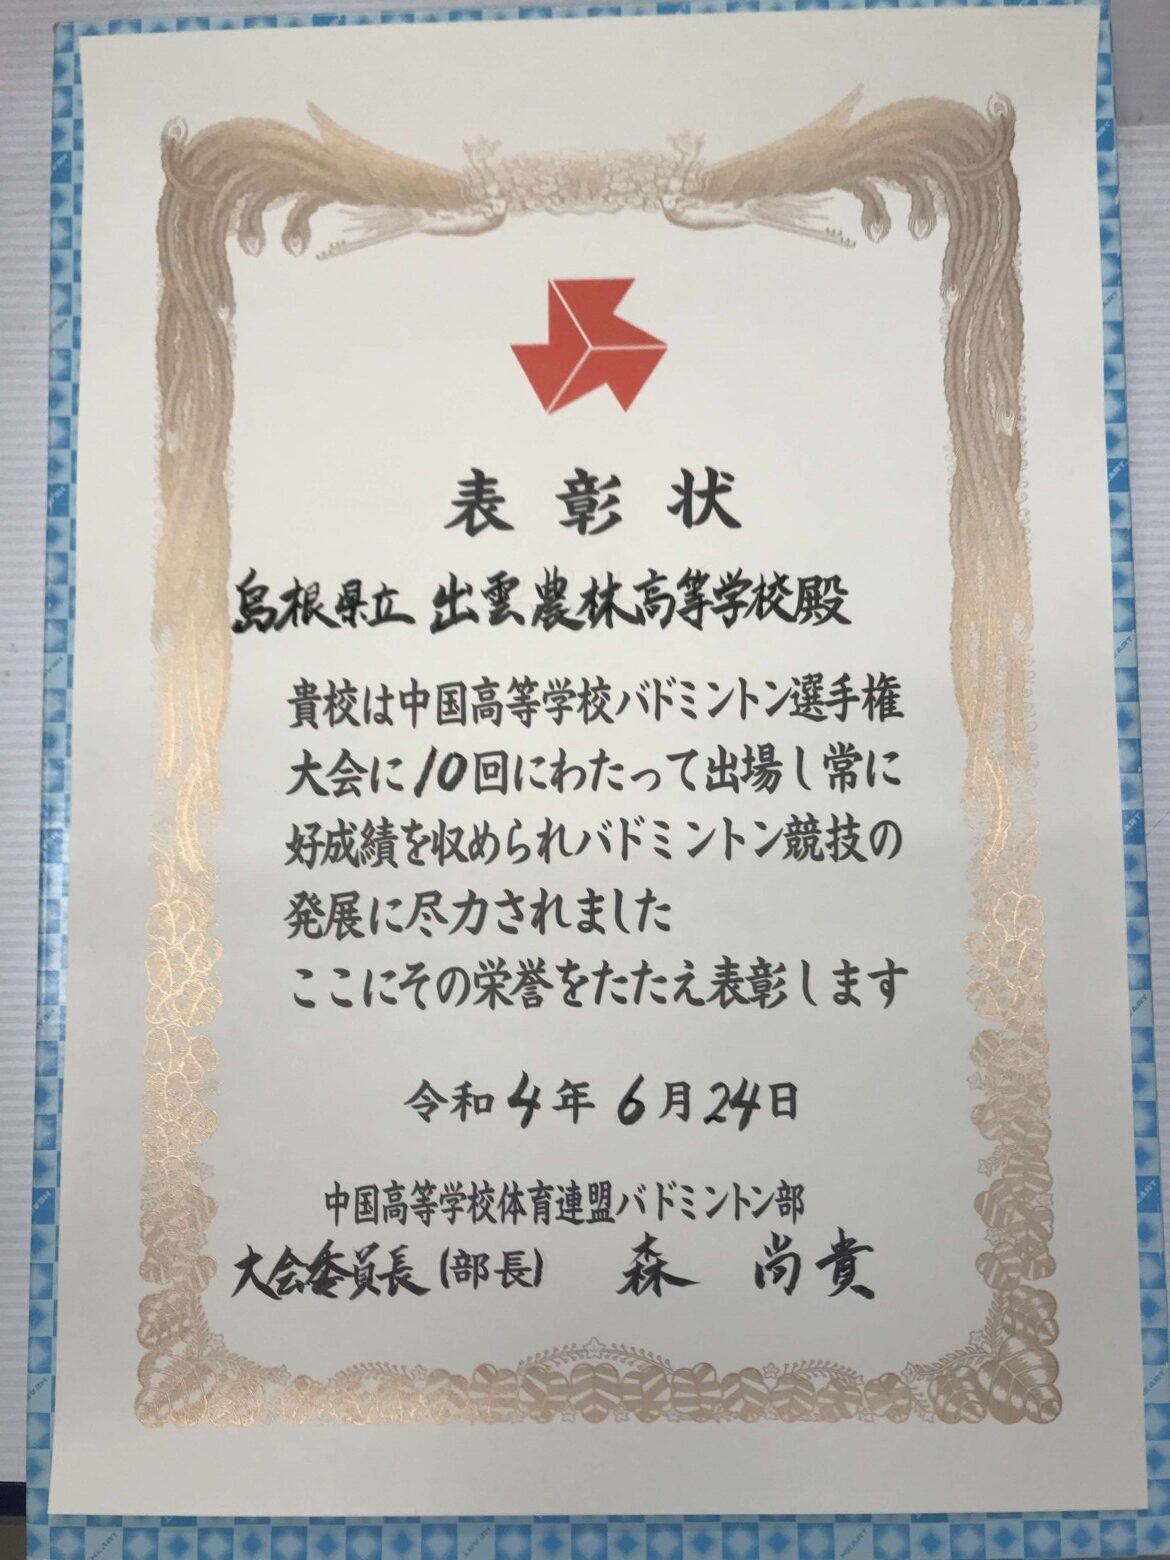 表彰状
島根県立 出雲農林高等学校殿
貴校は中国高等学校バドミントン選手権
大会に10回にわたって出場し常に
好成績を収められバドミントン競技の
発展に尽力されました
ここにその栄誉をたたえ表彰します
令和4年 6月24日
中国高等学校体育連盟バドミントン部
大会委員長(部長) 森 尚貴